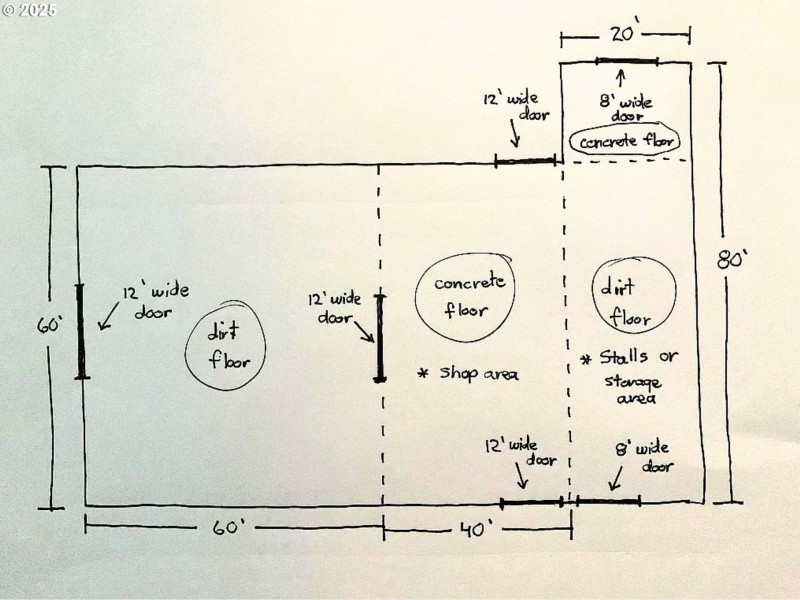 © 2025
20'
12' wide
door
8' wide
door
concrete floor
80'
60'
12' wide
door
dirt
floor
12' wide
door
concrete
floor
* Shop area
dirt
floor
* Stalls or
storage
area
12' wide
door
8' wide
door
60'
40'